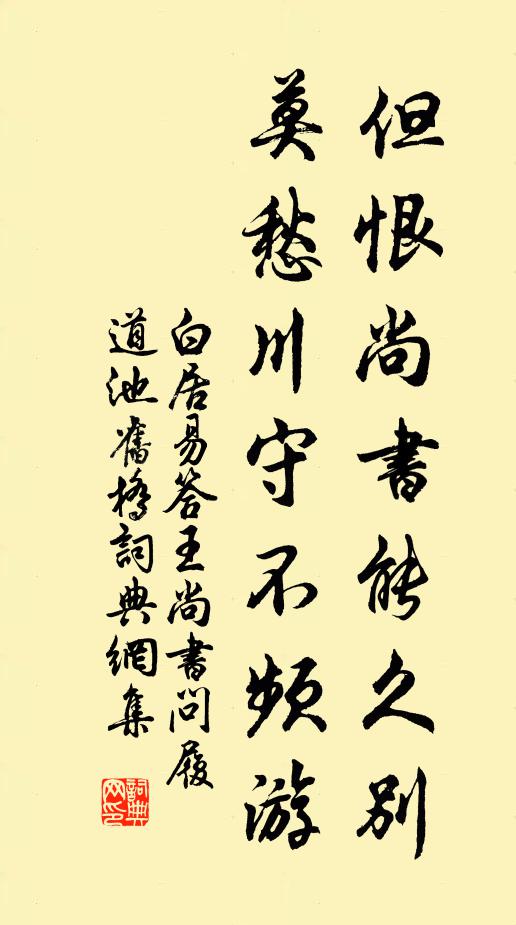 但恨尚書能久別
莫愁川守不頻游
白居易答王尚書問履
道池舊橋詞典網集
詞典
网印